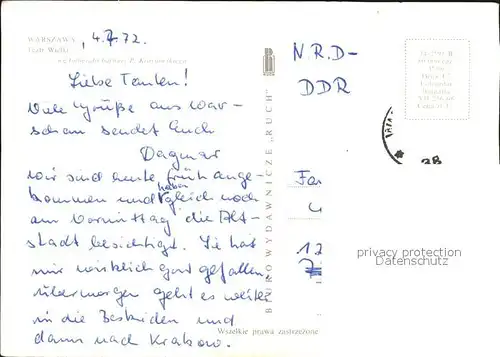 WARSZAWA
Teatr Wielki
4.7.72.
Liebe Tanten!
Viele Grüße aus War-
schau sendet Euch
Dagmar
Wir sind heute früh ange-
kommen und haben gleich noch
am Vormittag die Alt-
stadt besichtigt. Sie hat
mir wirklich gut gefallen.
Übermorgen geht es weiter
in die Beskiden und
dann nach Krakow.
BIURO WYDAWNICZE „RUCH"
Wszelkie prawa zastrzeżone
N.R.D-
DDR
Fa
12
privacy protection
Datenschutz